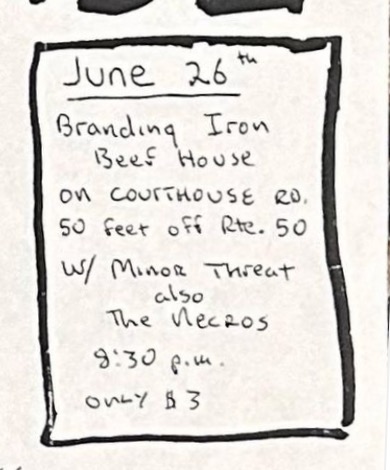 June 26th
Branding Iron
Beef House
on COURTHOUSE RD.
50 feet off Rte. 50
W/ Minor Threat
also
The Necros
8:30 p.m.
only $3